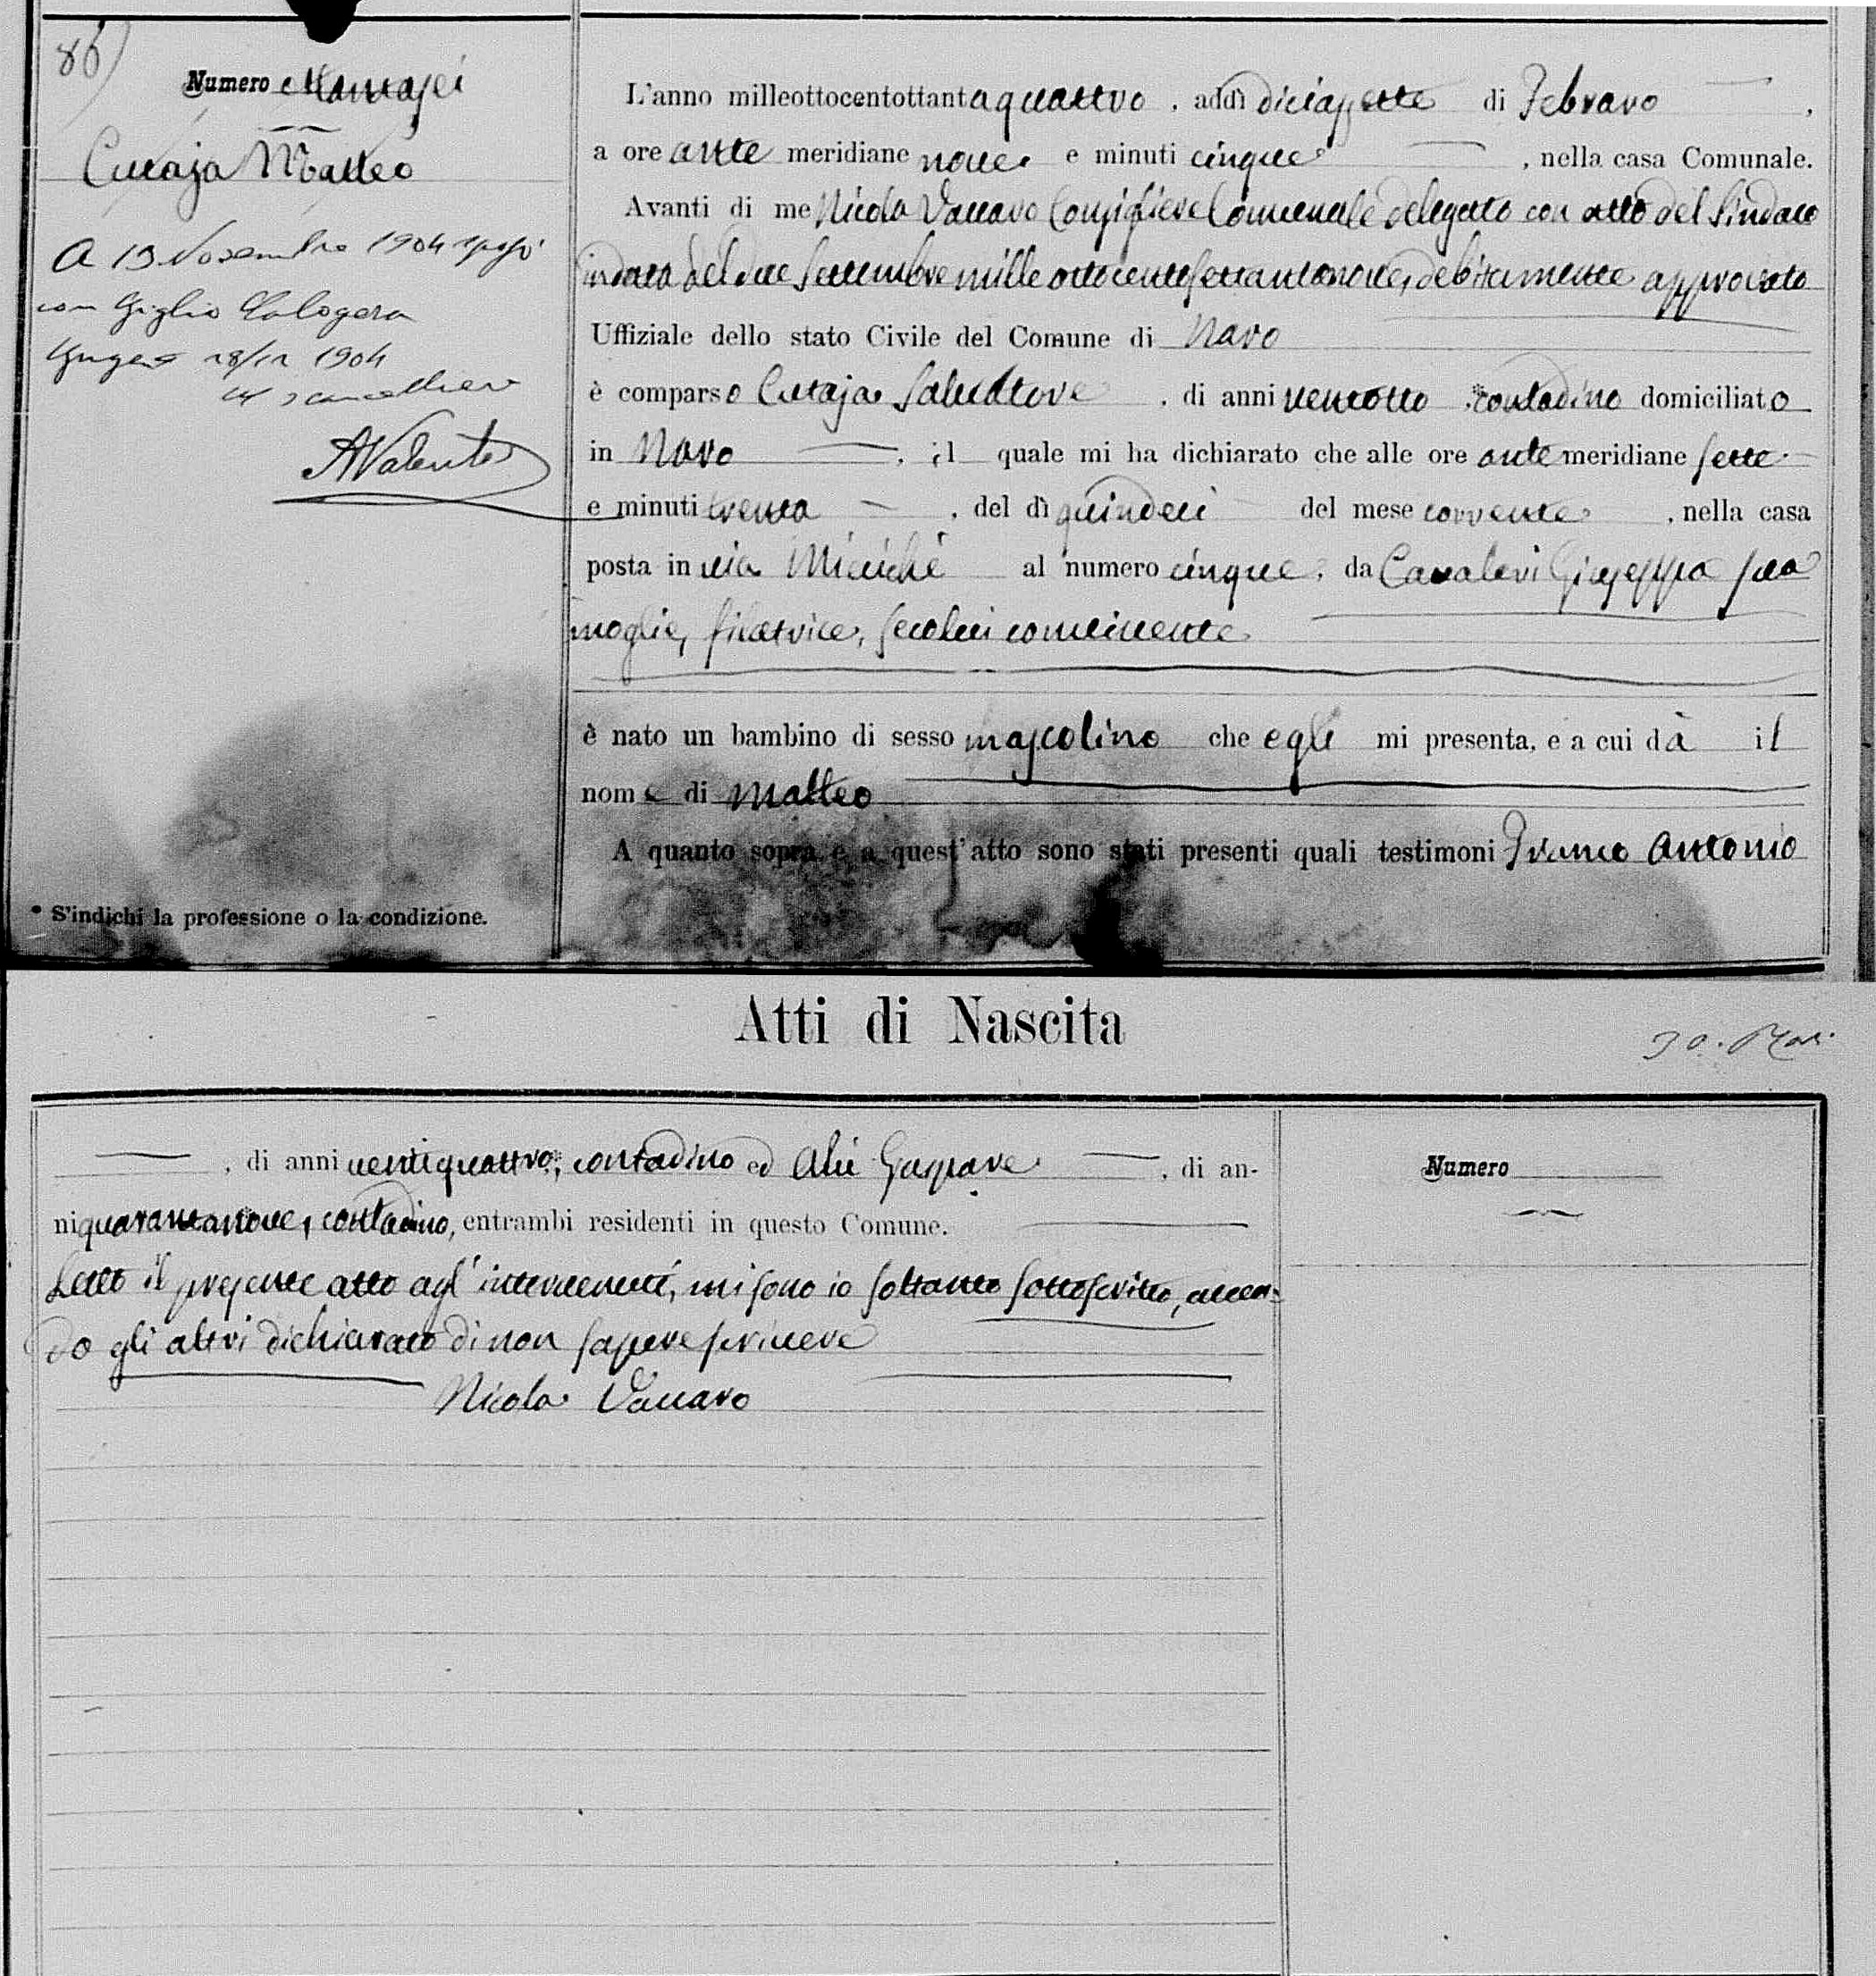 86)
Numero Ottantasei
Cutaja Matteo
A 13 Novembre 1904 sposò
con Giglio Calogera
28/12 1904
Il cancelliere
AValente
L'anno milleottocentottantaquattro, addì diciassette di Febraro,
a ore ante meridiane nove e minuti cinque, nella casa Comunale.
Avanti di me Nicola Vaccaro Consigliere Comunale delegato con atto del Sindaco
in data del due Settembre mille ottocentosettantanove, debitamente approvato
Uffiziale dello stato Civile del Comune di Naro
è comparso Cutaja Salvatore, di anni ventotto *contadino domiciliato
in Naro, il quale mi ha dichiarato che alle ore ante meridiane sette
e minuti trenta, del dì quindeci del mese corrente, nella casa
posta in via Miccichè al numero cinque, da Cavaleri Giuseppa sua
moglie, filatrice, secolui convivente
è nato un bambino di sesso mascolino che egli mi presenta, e a cui dà il
nome di Matteo
A quanto sopra e a quest'atto sono stati presenti quali testimoni Franco Antonio
* S'indichi la professione o la condizione.
Atti di Nascita
30.
, di anni ventiquattro, *contadino ed Alù Gaspare, di an-
ni quarantanove, contadino, entrambi residenti in questo Comune.
Letto il presente atto agl'intervenuti, mi sono io soltanto sottoscritto, aven-
do gli altri dichiarato di non sapere scrivere
Nicola Vaccaro
Numero